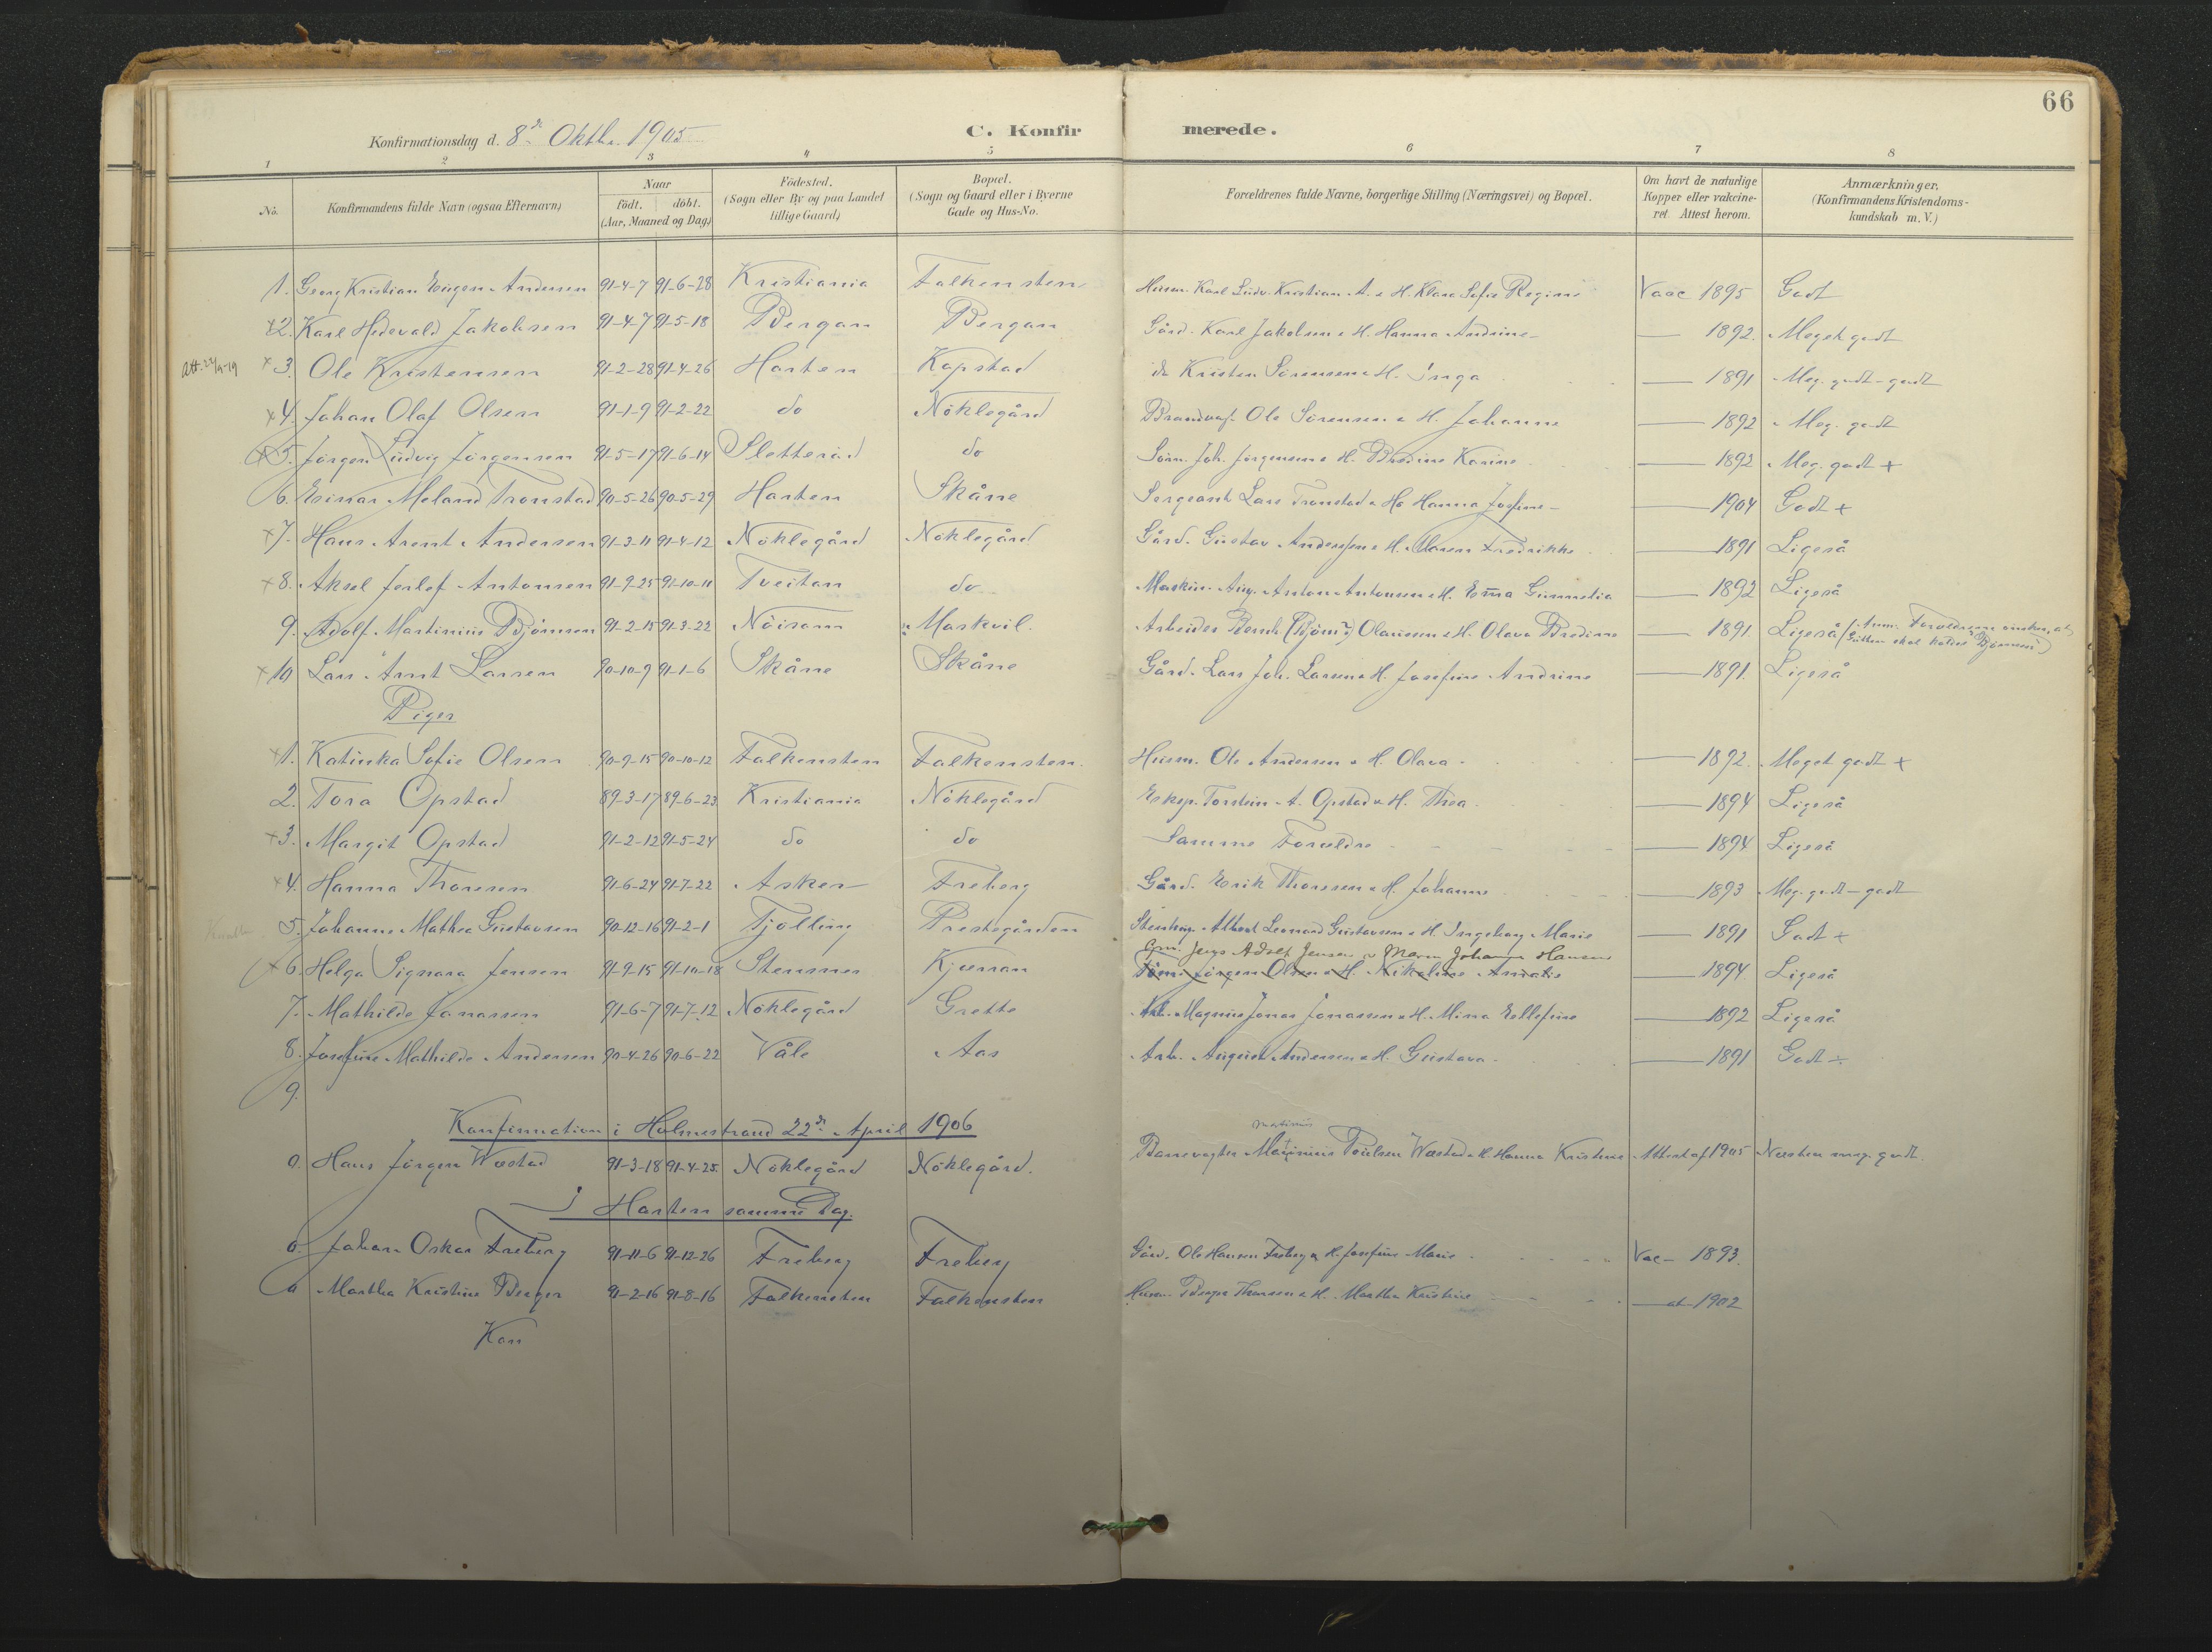 66
Konfirmationsdag d. 8de Oktbr. 1905 C. Konfirmerede.
1 2 3 4 5 6 7 8
No. Konfirmandens fulde Navn (ogsaa Efternavn) Naar födt. döbt. (Aar, Maaned og Dag) Födested. (Sogn eller By og paa Landet tillige Gaard) Bopæl. (Sogn og Gaard eller i Byerne Gade og Hus-No. Forældrenes fulde Navne, borgerlige Stilling (Næringsvei) og Bopæl. Om havt de naturlige Kopper eller vakcineret. Attest herom. Anmærkninger. (Konfirmandens Kristendomskundskab m. V.)
1. Georg Kristian Eugen Andersen 91-4-7 91-6-28 Kristiania Falkensten Husm. Karl Ludv. Kristian A. & H. Klara Sofie Regine Vacc 1895 Godt
x2. Karl Hedevald Jakobsen 91-4-7 91-5-18 Bergan Bergan Gård. Karl Jakobsen & H. Hanna Andrine — 1892. Meget godt
x3. Ole Kristensen 91-2-28 91-4-26 Horten Kopstad do Kristen Sörensen & H. Inga — 1891 Meg. godt - godt
x4. Johan Olaf Olsen 91-1-9 91-2-22 do Nöklegård Ole Sörensen & H. Johanne — 1892 Meg. godt
x5. Jörgen Ludvig Jörgensen 91-5-17 91-6-14 Sletteröd do Joh. Jörgensen & H. Karine — 1892 Meg. godt +
6. Einar Meland Tronstad 90-5-26 90-5-29 Horten Skåne Sergeant Lars Tronstad & H. Hanna Josefine — 1904 Godt +
x7. Hans Arent Andersen 91-3-11 91-4-12 Nöklegård Nöklegård Gård. Gustav Anderssen & H. Maren Fredrikke — 1891 Ligeså
x8. Aksel Jerlof Antonsen 91-9-25 91-10-11 Tveitan do Maskin. Aug. Anton Antonsen & H. Em̄a — 1892 Ligeså
9. Adolf Martinius Björnsen 91-2-15 91-3-22 Nöisom Maskvil. Arbeider Bernh. (Björn?) Olaussen & H. Olava Bredine — 1891. Ligeså (Anm. Forældrene önsker, at Gutten skal kaldes "Björnsen")
x10 Lars Arnt Larsen 90-10-9 91-1-6 Skåne Skåne Gård. Lars Joh. Larsen & H. Josefine Andrine — 1891. Ligeså
Piger
x1. Katinka Sofie Olsen 90-9-15 90-10-12 Falkensten Falkensten. Husm. Ole Andersen & H. Olava — 1892. Meget godt +
2. Tora Opstad 89-3-17 89-6-23 Kristiania Nöklegård Torstein A. Opstad & H. Thea — 1894 Ligeså
x3. Margit Opstad 91-2-12 91-5-24 do do Samme Forældre — 1894 Ligeså
x4. Hanna Thoresen 91-6-24 91-7-22 Asker Freberg Gård. Erik Thoressen & H. Johanne — 1893 Meg. godt - godt
5. Johanne Mathea Gustavsen 90-12-16 91-2-1 Tjölling Prestegården Stenhug. Albert Leonard Gustavsen & H. Ingeborg Marie — 1891 Godt +
Jens Adolf Jensen & Maren Johanne Hansen
x6. Helga Signora Jensen 91-9-15 91-10-18 Stensnes Kjærran Jörgen Olsen & H. Nikoline — 1894. Ligeså
7. Mathilde Jonassen 91-6-7 91-7-12 Nöklegård Grette Arb. Magnus Jonas Jonassen & H. Mina Ellefine — 1892 Ligeså
8. Josefine Mathilde Andersen 90-4-26 90-6-22 Våle Aas Arb. August Andersen & H. Gustava — 1891 Godt ÷
9.
Konfirmation i Holmestrand 22de April 1906
Martinius
0. Hans Jörgen Wæstad 91-3-18 91-4-25 Nöklegård Nöklegård. Banevogter Poulsen Wæstad & H. Hanna Kristine Attest af 1905 Næsten meg. godt.
i Horten samme Dag.
0. Johan Oskar Freberg 91-11-6 91-12-26 Freberg Freberg Gård. Ole Hansen Freberg & H. Josefine Marie Vac - 1893.
0 Martha Kristine Berger 91-2-16 91-8-16 Falkensten Falkensten Husm. Berger Thorsen & H. Martha Kristine — at 1902
Kon